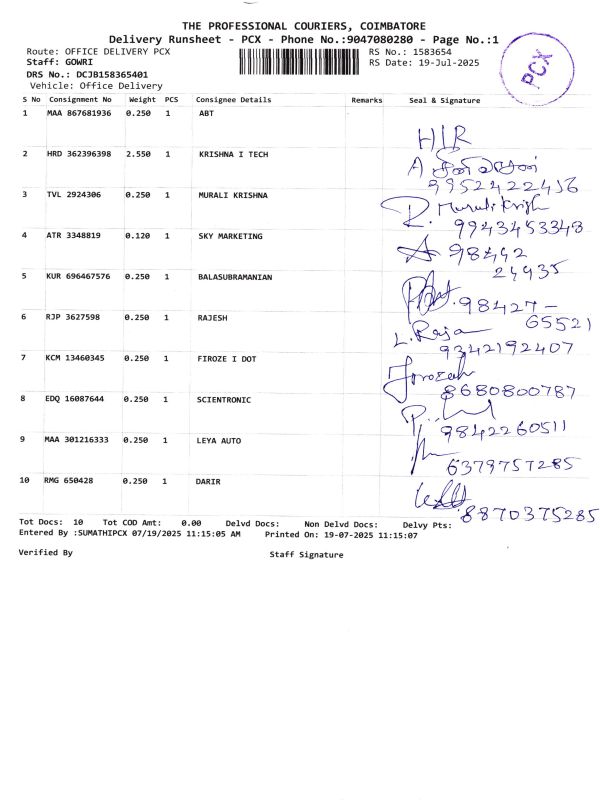 THE PROFESSIONAL COURIERS, COIMBATORE
Delivery Runsheet - PCX - Phone No.:9047080280 - Page No.:1
Route: OFFICE DELIVERY PCX RS No.: 1583654
Staff: GOWRI RS Date: 19-Jul-2025
DRS No.: DCJB158365401
Vehicle: Office Delivery
PCX
S No Consignment No Weight PCS Consignee Details Remarks Seal & Signature
1 MAA 867681936 0.250 1 ABT
HIR
2 HRD 362396398 2.550 1 KRISHNA I TECH
9952422416
3 TVL 2924306 0.250 1 MURALI KRISHNA
R. Murali Krish
9943453348
4 ATR 3348819 0.120 1 SKY MARKETING
98442
24935
5 KUR 696467576 0.250 1 BALASUBRAMANIAN
98427-
65521
6 RJP 3627598 0.250 1 RAJESH
L. Raja
9342192407
7 KCM 13460345 0.250 1 FIROZE I DOT
Firozah
8680800787
8 EDQ 16087644 0.250 1 SCIENTRONIC
9842260511
9 MAA 301216333 0.250 1 LEYA AUTO
6379757285
10 RMG 650428 0.250 1 DARIR
8870375285
Tot Docs: 10 Tot COD Amt: 0.00 Delvd Docs: Non Delvd Docs: Delvy Pts:
Entered By :SUMATHIPCX 07/19/2025 11:15:05 AM Printed On: 19-07-2025 11:15:07
Verified By Staff Signature